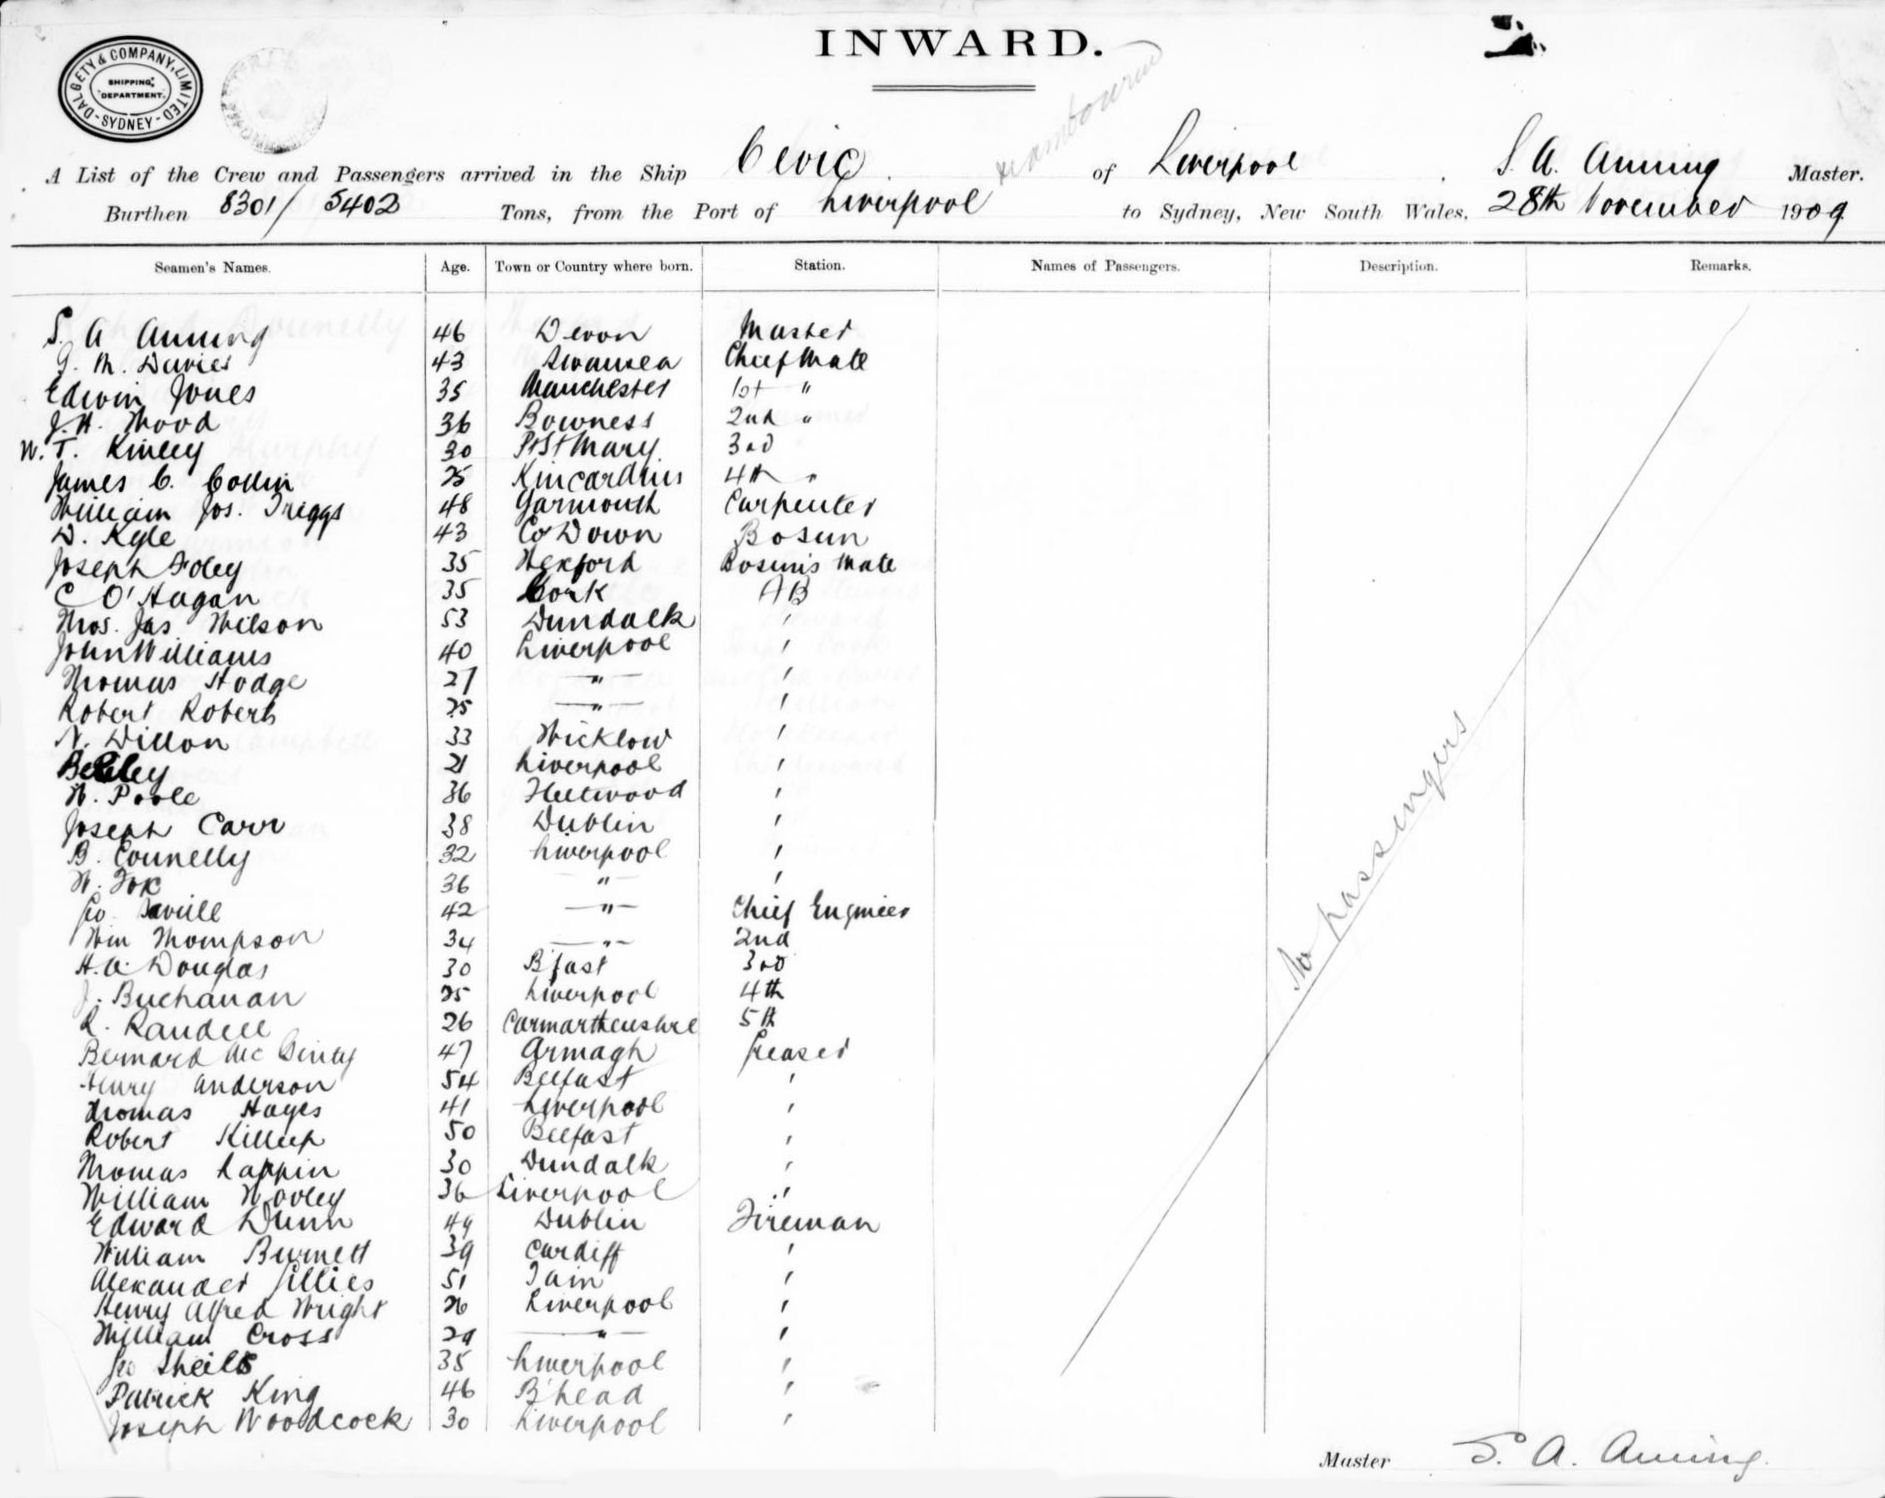 INWARD.
DALGETY & COMPANY, LIMITED
SHIPPING
DEPARTMENT.
-SYDNEY-
A List of the Crew and Passengers arrived in the Ship Cevic of Liverpool S. A. Anning Master.
Burthen 8301/5402 Tons, from the Port of Liverpool to Sydney, New South Wales, 28th November 1909
Seamen's Names. Age. Town or Country where born. Station. Names of Passengers. Description. Remarks.
S. A Anning 46 Devon Master
G. M. Davies 43 Swansea Chief Mate
Edwin Jones 35 Manchester 1st "
J. H. Wood 36 Bowness 2nd "
W. T. Kinley 30 Pt St Mary 3rd
James C. Collin 25 Kincardine 4th "
William Jos. Triggs 48 Yarmouth Carpenter
D. Kyle 43 Co Down Bosun
Joseph Foley 35 Wexford Bosun's Mate
C O'Hagan 35 Cork AB
Thos. Jas Wilson 53 Dundalk '
John Williams 40 Liverpool '
Thomas Hodge 27 — " — '
Robert Roberts 25 — " — '
N. Dillon 33 Wicklow '
21 Liverpool '
W. Poole 36 Fleetwood '
Joseph Carr 38 Dublin '
B. Connelly 32 Liverpool '
W. Fox 36 — " — '
Geo. Saville 42 — " — Chief Engineer
Wm Thompson 34 — " — 2nd
H. A. Douglas 30 B'fast 3rd
J. Buchanan 25 Liverpool 4th
R. Randell 26 Carmarthenshire 5th
Bernard Mc Ginty 47 Armagh Greaser
Henry Anderson 54 Belfast '
Thomas Hayes 41 Liverpool '
Robert Killeep 50 Belfast '
Thomas Lappin 30 Dundalk '
William Wooley 36 Liverpool '
Edward Dunn 49 Dublin Fireman
William Burnett 39 Cardiff '
Alexander Gillies 51 Tain '
Henry Alfred Wright 26 Liverpool '
William Cross 29 — " — '
Geo Sheils 35 Liverpool '
Patrick King 46 B'head '
Joseph Woodcock 30 Liverpool '
No passengers
Master S. A. Anning